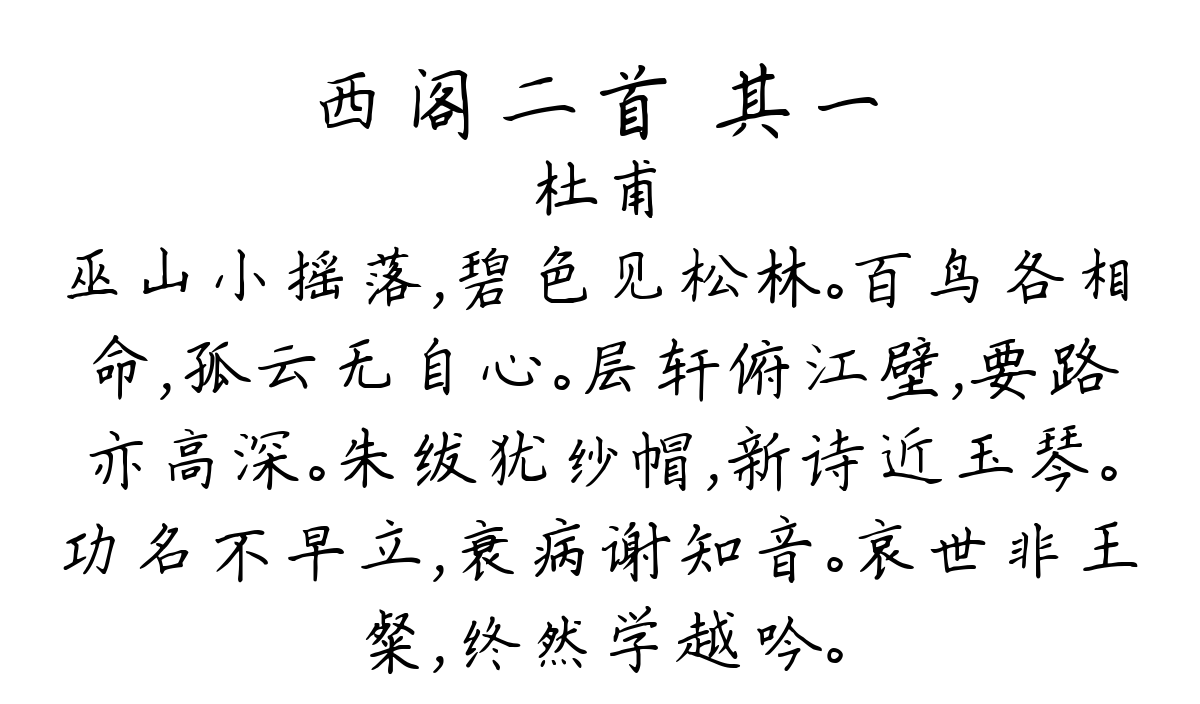 西阁二首 其一
杜甫
巫山小摇落,碧色见松林。百鸟各相
命,孤云无自心。层轩俯江壁,要路
亦高深。朱绂犹纱帽,新诗近玉琴。
功名不早立,衰病谢知音。哀世非王
粲,终然学越吟。